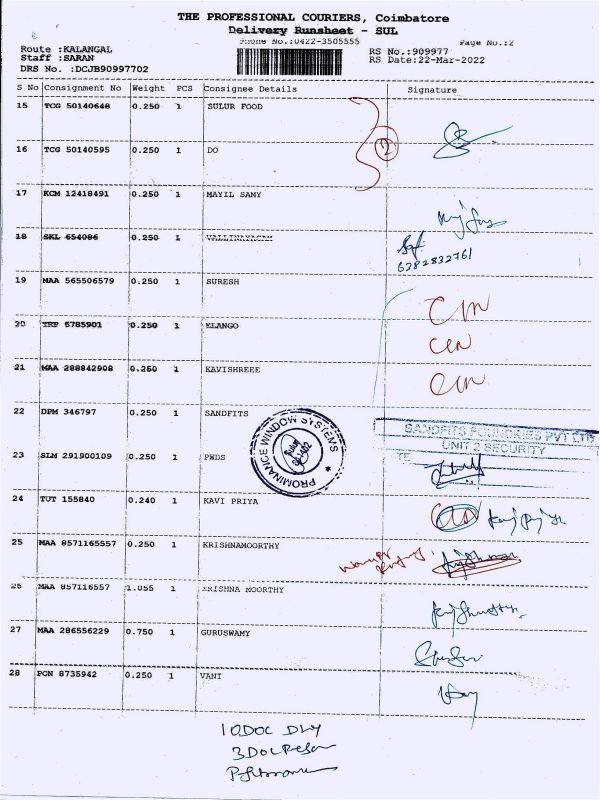 THE PROFESSIONAL COURIERS, Coimbatore
Delivery Runsheet - SUL
Phone No.:0422-3505555
Page No.:2
Route :KALANGAL
RS No.:909977
Staff :SARAN
RS Date:22-Mar-2022
DRS No. :DCJB90997702
S No Consignment No Weight PCS Consignee Details Signature
15 TCG 50140648 0.250 1 SULUR FOOD
2
16 TCG 50140595 0.250 1 DO
17 KCM 12418491 0.250 1 MAYIL SAMY
18 SKL 654086 0.250 1 VALLINAYAGAM
6382832761
19 MAA 565506579 0.250 1 SURESH
20 TRP 6785901 0.250 1 ELANGO
21 MAA 288842908 0.250 1 KAVISHREEE
22 DPM 346797 0.250 1 SANDFITS
PROMINANCE WINDOW SYSTEMS
SANDFITS FOUNDRIES PVT LTD
UNIT 2 SECURITY
23 SLM 291900109 0.250 1 PWDS
24 TUT 155840 0.240 1 KAVI PRIYA
25 MAA 8571165557 0.250 1 KRISHNAMOORTHY
26 MAA 857116557 1.055 1 KRISHNA MOORTHY
27 MAA 286556229 0.750 1 GURUSWAMY
28 PON 8735942 0.250 1 VANI
10DOC DLY